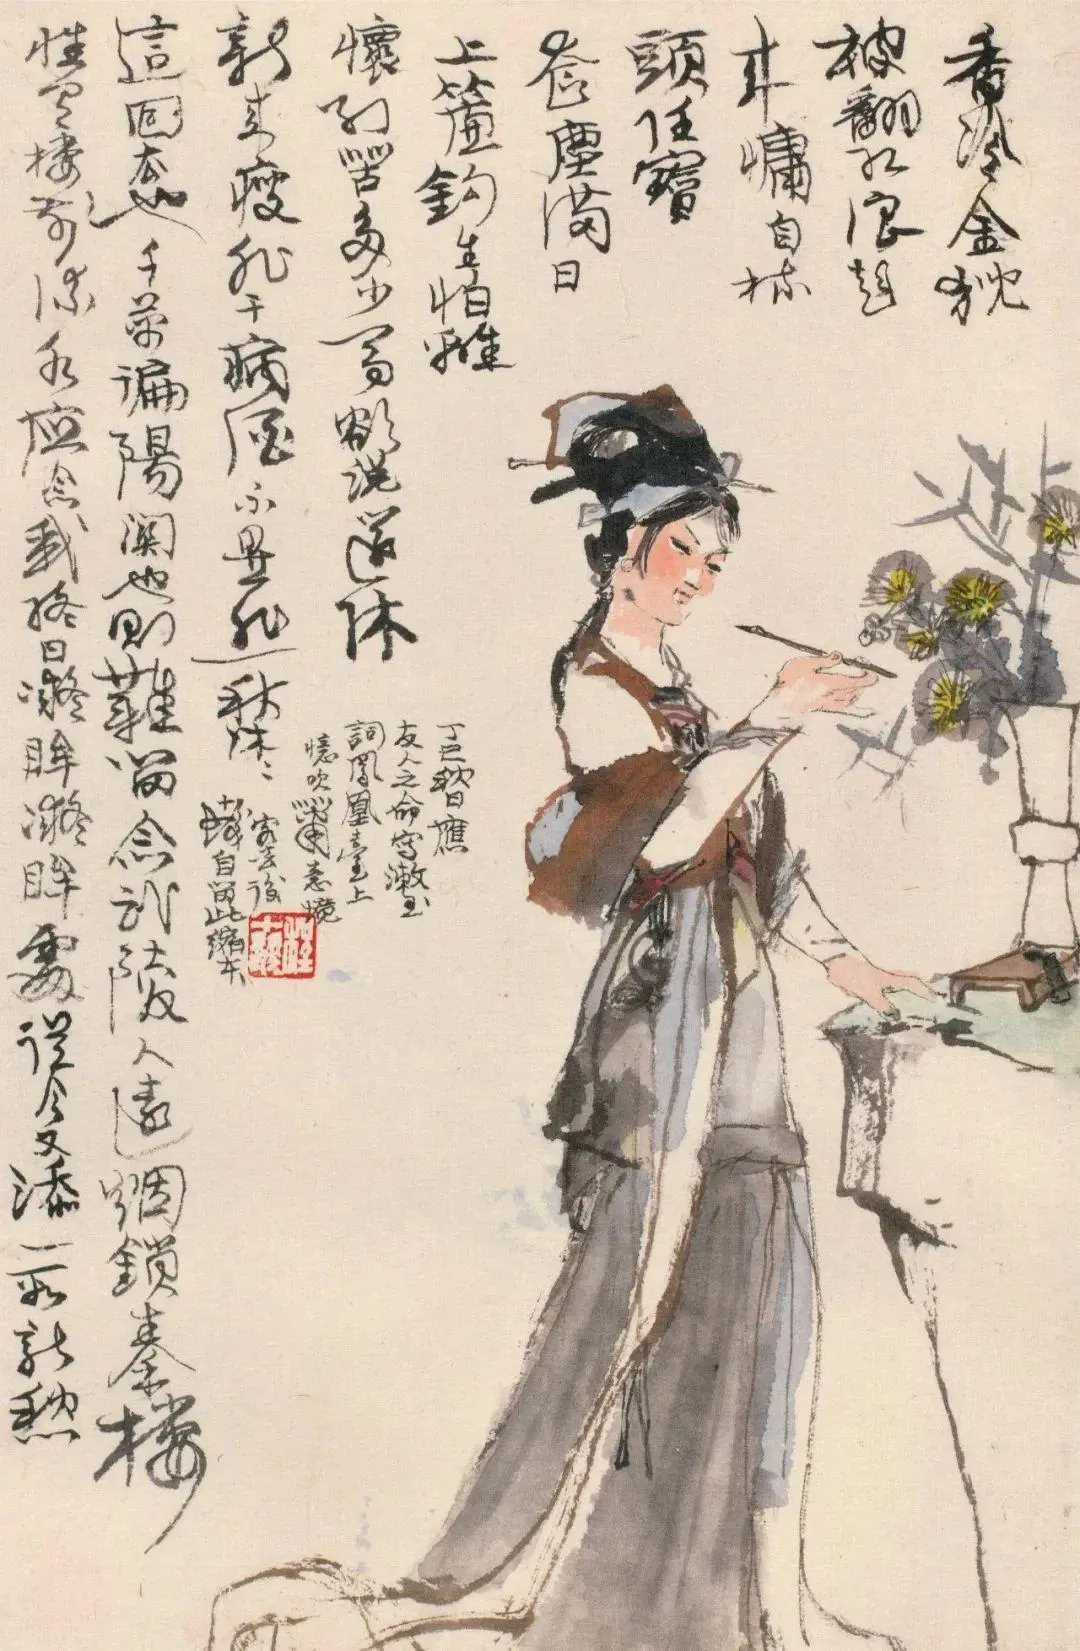 香冷金猊
被翻紅浪起
來慵自梳
頭任寶
奩塵滿日
上簾鈎生怕離
懷別苦多少事欲說還休
新來瘦非干病酒不是悲秋休〻
這回去也千萬遍陽關也則難留念武陵人遠烟鎖秦樓
惟有樓前流水應念我終日凝眸凝眸處從今又添一段新愁
丁巳秋日應
友人之命寫漱玉
詞鳳凰臺上
憶吹簫意境
寄去後
十髮自留此縮本